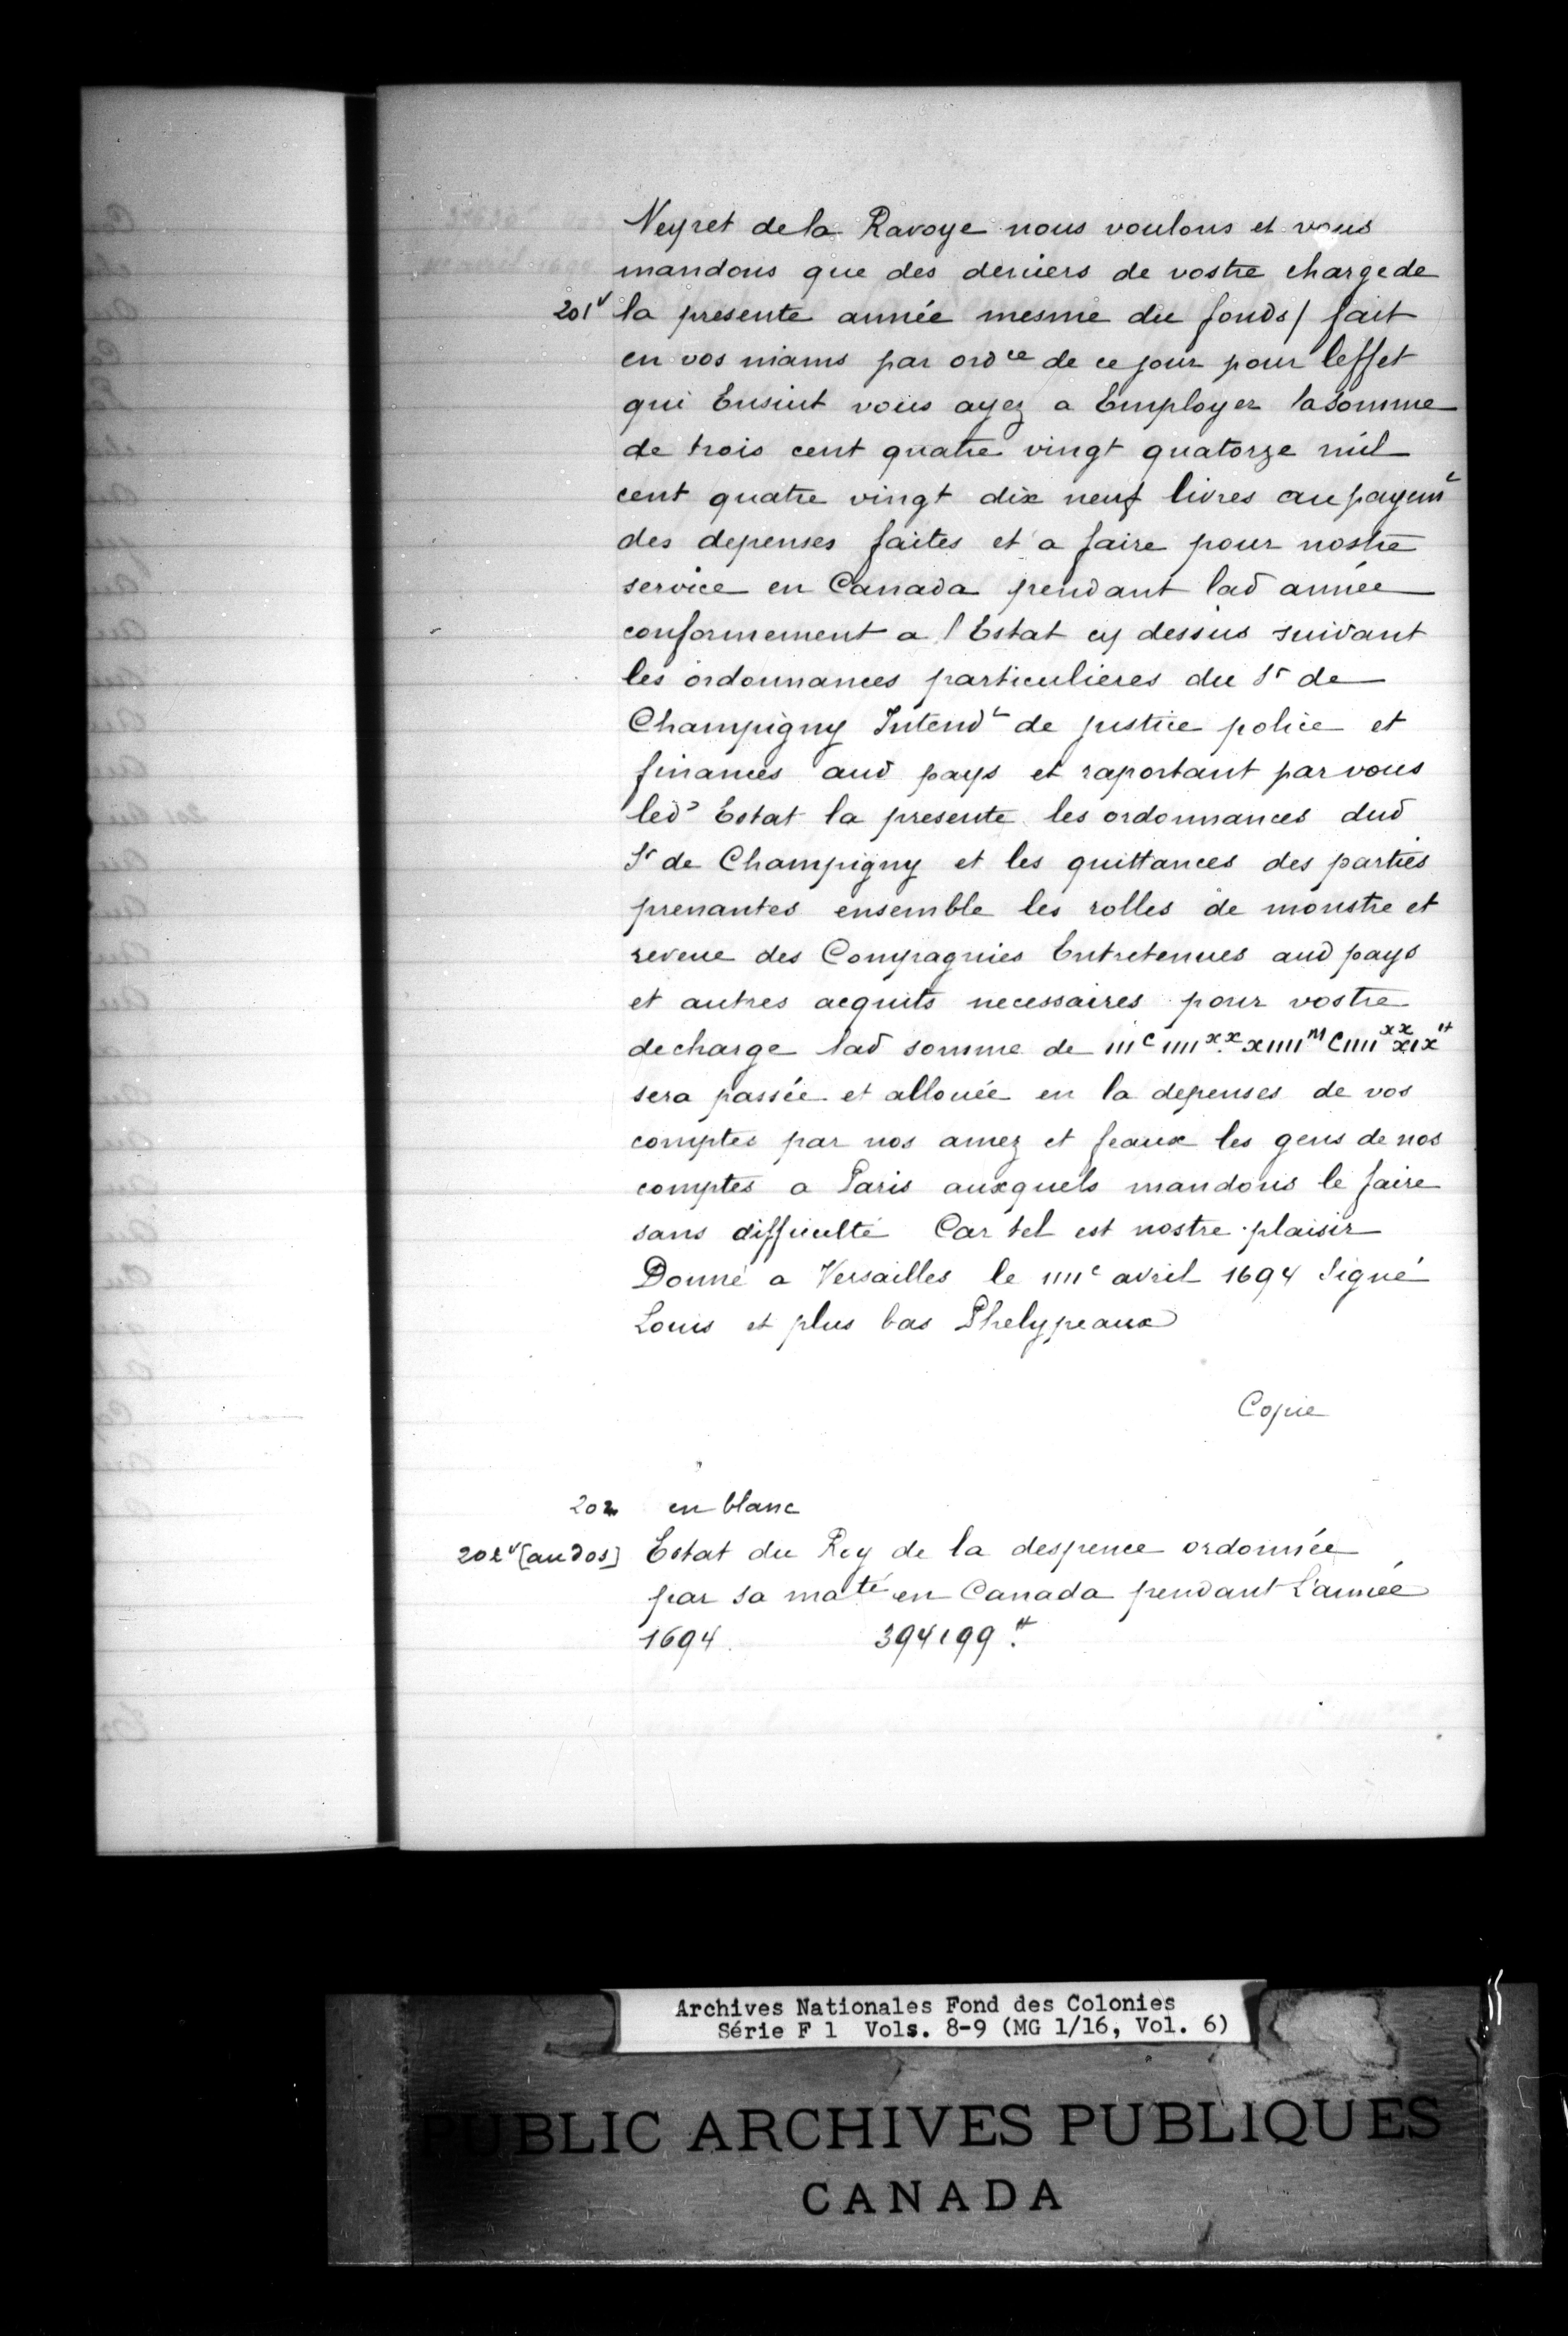 Neyret de la Ravoye nous voulons et vous
mandons que des deniers de vostre charge de
201v la presente année mesme du fonds / fait
en vos mains par ordce de ce jour pour leffet
qui Ensuit vous ayez a Employer la somme
de trois cent quatre vingt quatorze mil
cent quatre vingt dix neuf livres au payemt
des depenses faites et a faire pour nostre
service en Canada pendant lad année
conformement a l'Estat cy dessus suivant
les ordonnances particulieres du Sr de
Champigny Intendt de justice police et
finances aud pays et raportant par vous
led Estat la presente les ordonnances dud
Sr de Champigny et les quittances des parties
prenantes ensemble les rolles de monstre et
reveue des Compagnies Entretenues aud pays
et autres acquits necessaires pour vostre
decharge lad somme de IIIc IIIIxx XIIIIM CIIIIxx XIX ₶
sera passée et allouée en la depenses de vos
comptes par nos amez et feaux les gens de nos
comptes a Paris auxquels mandons le faire
sans difficulté Car tel est nostre plaisir
Donné a Versailles le IIIIe avril 1694 Signé
Louis et plus bas Phelypeaux
Copie
202 en blanc
202v [au dos] Estat du Roy de la despence ordonnée
par sa maté en Canada pendant L'année
1694. 394199 ₶.
201
Archives Nationales Fond des Colonies
Série F 1 Vols. 8-9 (MG 1/16, Vol. 6)
PUBLIC ARCHIVES PUBLIQUES
CANADA